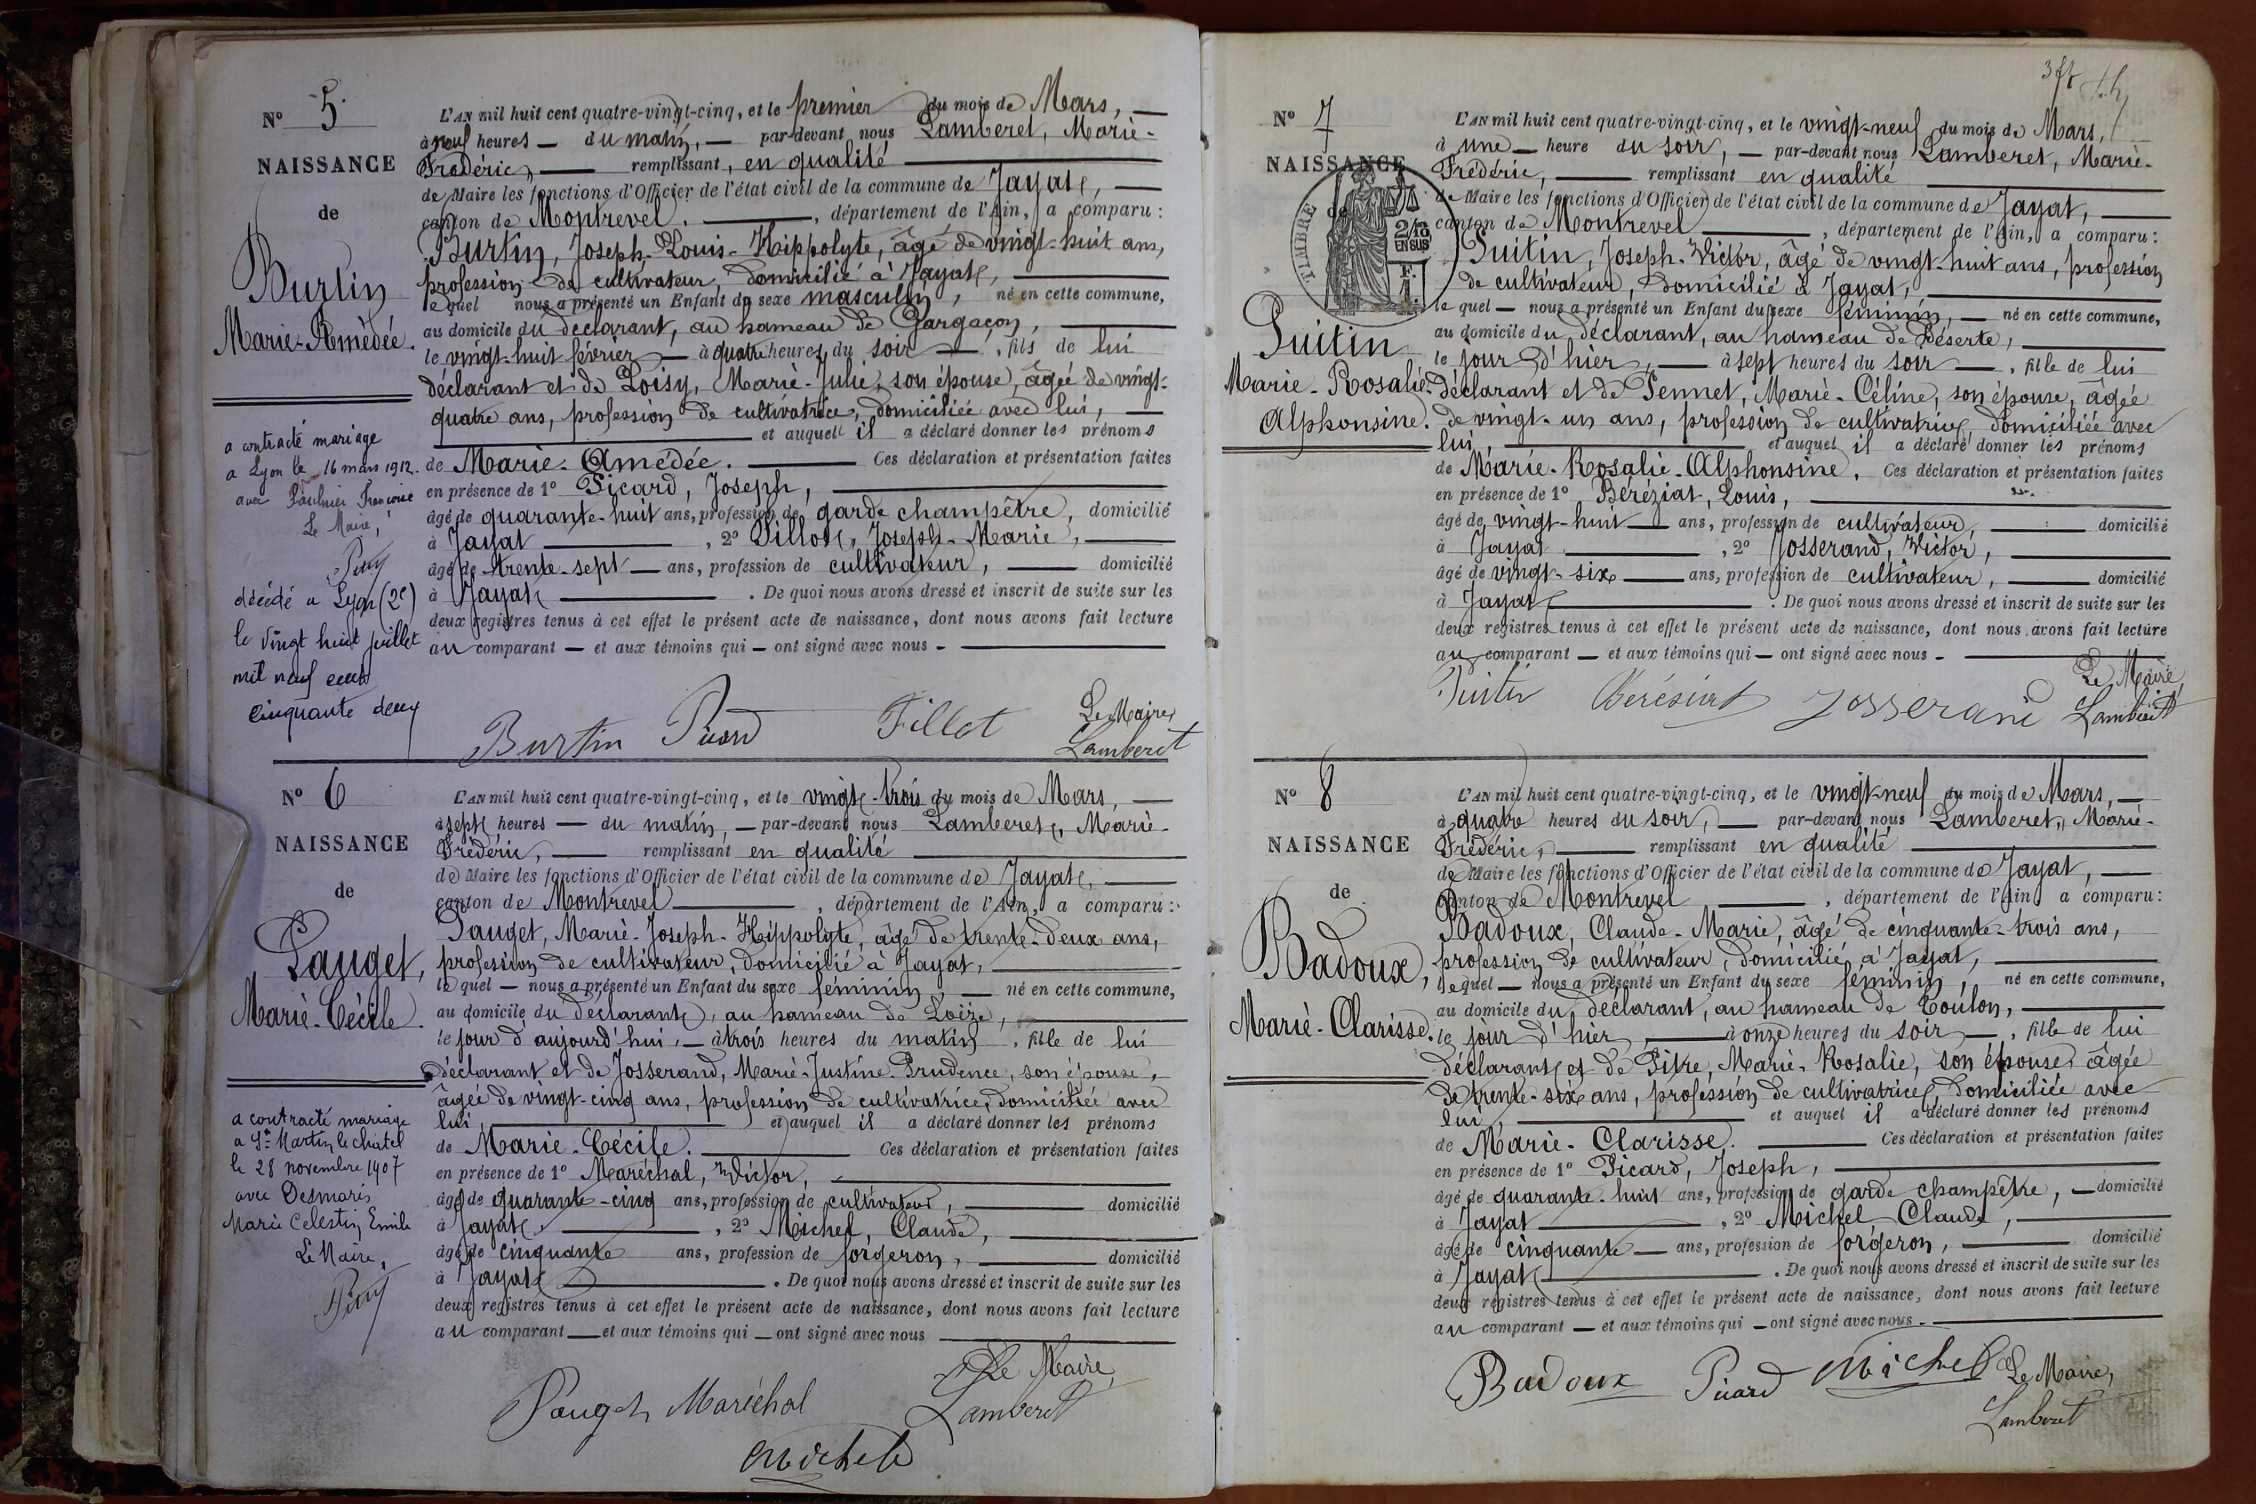 N° 5
NAISSANCE
de
Burtin
Marie-Amédée.
a contracté mariage
a Lyon le 16 mars 1912.
avec Françoise
Le Maire,
décédé a Lyon (2e)
le vingt huit juillet
mil neuf cent
cinquante deux
L'AN mil huit cent quatre-vingt-cinq, et le premier du mois de Mars,
à neuf heures du matin, par-devant nous Lamberet, Marie-
Frédéric, remplissant, en qualité
de Maire les fonctions d'Officier de l'état civil de la commune de Jayat,
canton de Montrevel, département de l'Ain, a comparu :
Burtin, Joseph-Louis-Hippolyte, âgé de vingt-huit ans,
profession de cultivateur, domicilié à Jayat,
lequel nous a présenté un Enfant du sexe masculin, né en cette commune,
au domicile du déclarant, au hameau de Gargaçon,
le vingt-huit février à quatre heures du soir, fils de lui
déclarant et de Loisy, Marie-Julie, son épouse, âgée de vingt-
quatre ans, profession de cultivatrice, domiciliée avec lui,
et auquel il a déclaré donner les prénoms
de Marie-Amédée. Ces déclaration et présentation faites
en présence de 1° Picard, Joseph,
âgé de quarante-huit ans, profession de garde champêtre, domicilié
à Jayat, 2° Fillot, Joseph-Marie,
âgé de trente-sept ans, profession de cultivateur, domicilié
à Jayat. De quoi nous avons dressé et inscrit de suite sur les
deux registres tenus à cet effet le présent acte de naissance, dont nous avons fait lecture
au comparant et aux témoins qui ont signé avec nous
Le Maire,
Burtin Picard Fillot Lamberet
N° 6
NAISSANCE
de
Pauget,
Marie-Cécile.
a contracté mariage
a St Martin le chatel
le 28 novembre 1907
avec Desmaris
Marie Celestin Emile
Le Maire,
L'AN mil huit cent quatre-vingt-cinq, et le vingt-trois du mois de Mars,
à sept heures du matin, par-devant nous Lamberet, Marie-
Frédéric, remplissant en qualité
de Maire les fonctions d'Officier de l'état civil de la commune de Jayat,
canton de Montrevel, département de l'Ain, a comparu :
Pauget, Marie-Joseph-Hippolyte, âgé de trente-deux ans,
profession de cultivateur, domicilié à Jayat,
lequel nous a présenté un Enfant du sexe féminin, né en cette commune,
au domicile du déclarant, au hameau de Loize,
le jour d'aujourd'hui, à trois heures du matin, fille de lui
déclarant et de Josserand, Marie-Justine-Prudence, son épouse,
âgée de vingt-cinq ans, profession de cultivatrice, domiciliée avec
lui, et auquel il a déclaré donner les prénoms
de Marie-Cécile. Ces déclaration et présentation faites
en présence de 1° Maréchal, Victor,
âgé de quarante-cinq ans, profession de cultivateur, domicilié
à Jayat, 2° Michel, Claude,
âgé de cinquante ans, profession de forgeron, domicilié
à Jayat. De quoi nous avons dressé et inscrit de suite sur les
deux registres tenus à cet effet le présent acte de naissance, dont nous avons fait lecture
au comparant et aux témoins qui ont signé avec nous
Le Maire,
Pauget Maréchal Lamberet
Michel
N° 7
NAISSANCE
de
TIMBRE
2/10
EN SUS
F.
Puitin
Marie-Rosalie-
Alphonsine.
L'AN mil huit cent quatre-vingt-cinq, et le vingt-neuf du mois de Mars,
à une heure du soir, par-devant nous Lamberet, Marie-
Frédéric, remplissant en qualité
de Maire les fonctions d'Officier de l'état civil de la commune de Jayat,
canton de Montrevel, département de l'Ain, a comparu :
Puitin, Joseph-Victor, âgé de vingt-huit ans, profession
de cultivateur, domicilié à Jayat,
lequel nous a présenté un Enfant du sexe féminin, né en cette commune,
au domicile du déclarant, au hameau de Déserte,
le jour d'hier, à sept heures du soir, fille de lui
déclarant et de Pennet, Marie-Céline, son épouse, âgée
de vingt-un ans, profession de cultivatrice, domiciliée avec
lui, et auquel il a déclaré donner les prénoms
de Marie-Rosalie-Alphonsine. Ces déclaration et présentation faites
en présence de 1° Béréziat, Louis,
âgé de vingt-huit ans, profession de cultivateur, domicilié
à Jayat, 2° Josserand, Victor,
âgé de vingt-six ans, profession de cultivateur, domicilié
à Jayat. De quoi nous avons dressé et inscrit de suite sur les
deux registres tenus à cet effet le présent acte de naissance, dont nous avons fait lecture
au comparant et aux témoins qui ont signé avec nous
Le Maire
Puitin Béréziat Josserand Lamberet
N° 8
NAISSANCE
de
Badoux,
Marie-Clarisse.
L'AN mil huit cent quatre-vingt-cinq, et le vingt-neuf du mois de Mars,
à quatre heures du soir, par-devant nous Lamberet, Marie-
Frédéric, remplissant en qualité
de Maire les fonctions d'Officier de l'état civil de la commune de Jayat,
canton de Montrevel, département de l'Ain, a comparu :
Badoux, Claude-Marie, âgé de cinquante-trois ans,
profession de cultivateur, domicilié à Jayat,
lequel nous a présenté un Enfant du sexe féminin, né en cette commune,
au domicile du déclarant, au hameau de Toulon,
le jour d'hier, à onze heures du soir, fille de lui
déclarant et de Pitre, Marie-Rosalie, son épouse, âgée
de trente-six ans, profession de cultivatrice, domiciliée avec
lui, et auquel il a déclaré donner les prénoms
de Marie-Clarisse. Ces déclaration et présentation faites
en présence de 1° Picard, Joseph,
âgé de quarante-huit ans, profession de garde champêtre, domicilié
à Jayat, 2° Michel, Claude,
âgé de cinquante ans, profession de forgeron, domicilié
à Jayat. De quoi nous avons dressé et inscrit de suite sur les
deux registres tenus à cet effet le présent acte de naissance, dont nous avons fait lecture
au comparant et aux témoins qui ont signé avec nous.
Badoux Picard Michel Le Maire,
Lamberet